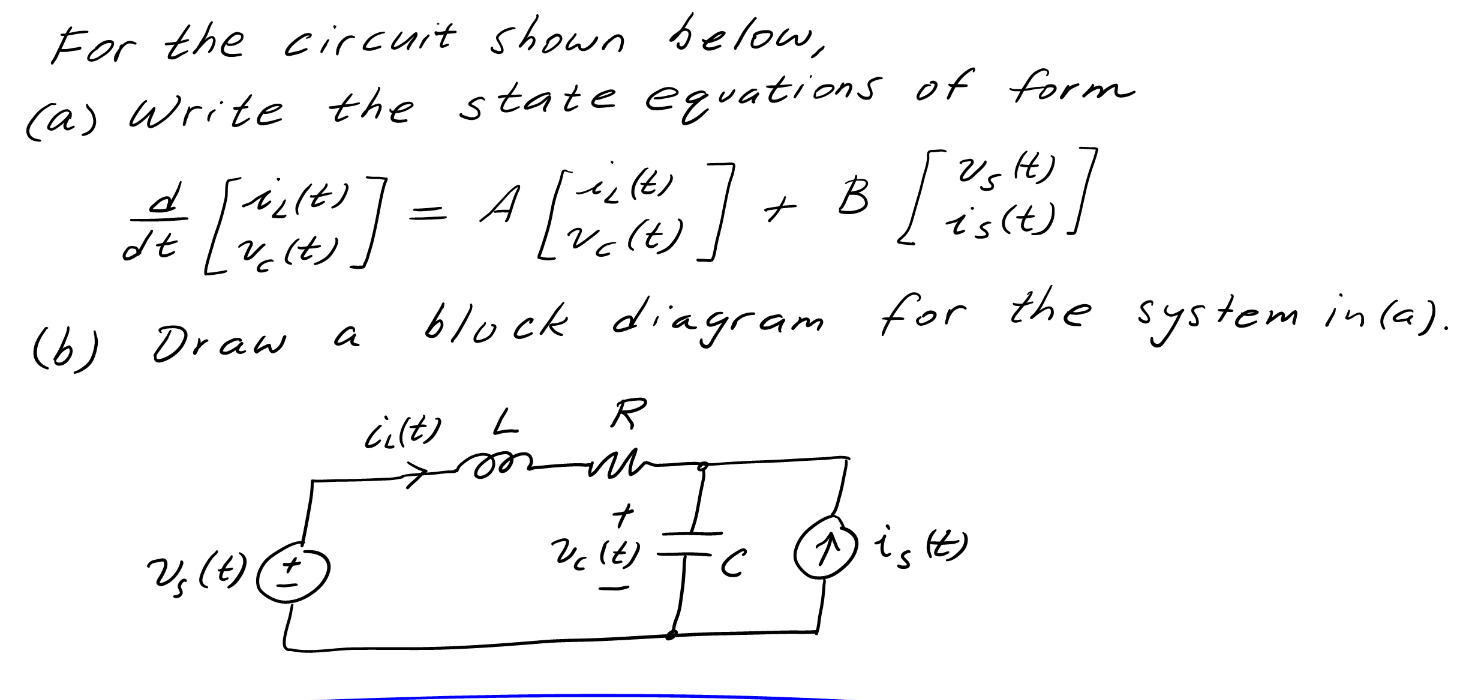 For the circuit shown below,
(a) Write the state equations of form
d/dt [i_L(t) v_c(t)] = A [i_L(t) v_c(t)] + B [v_s(t) i_s(t)]
(b) Draw a block diagram for the system in (a).
i_L(t) L R
+
v_s(t) + − v_c(t) C i_s(t)
−